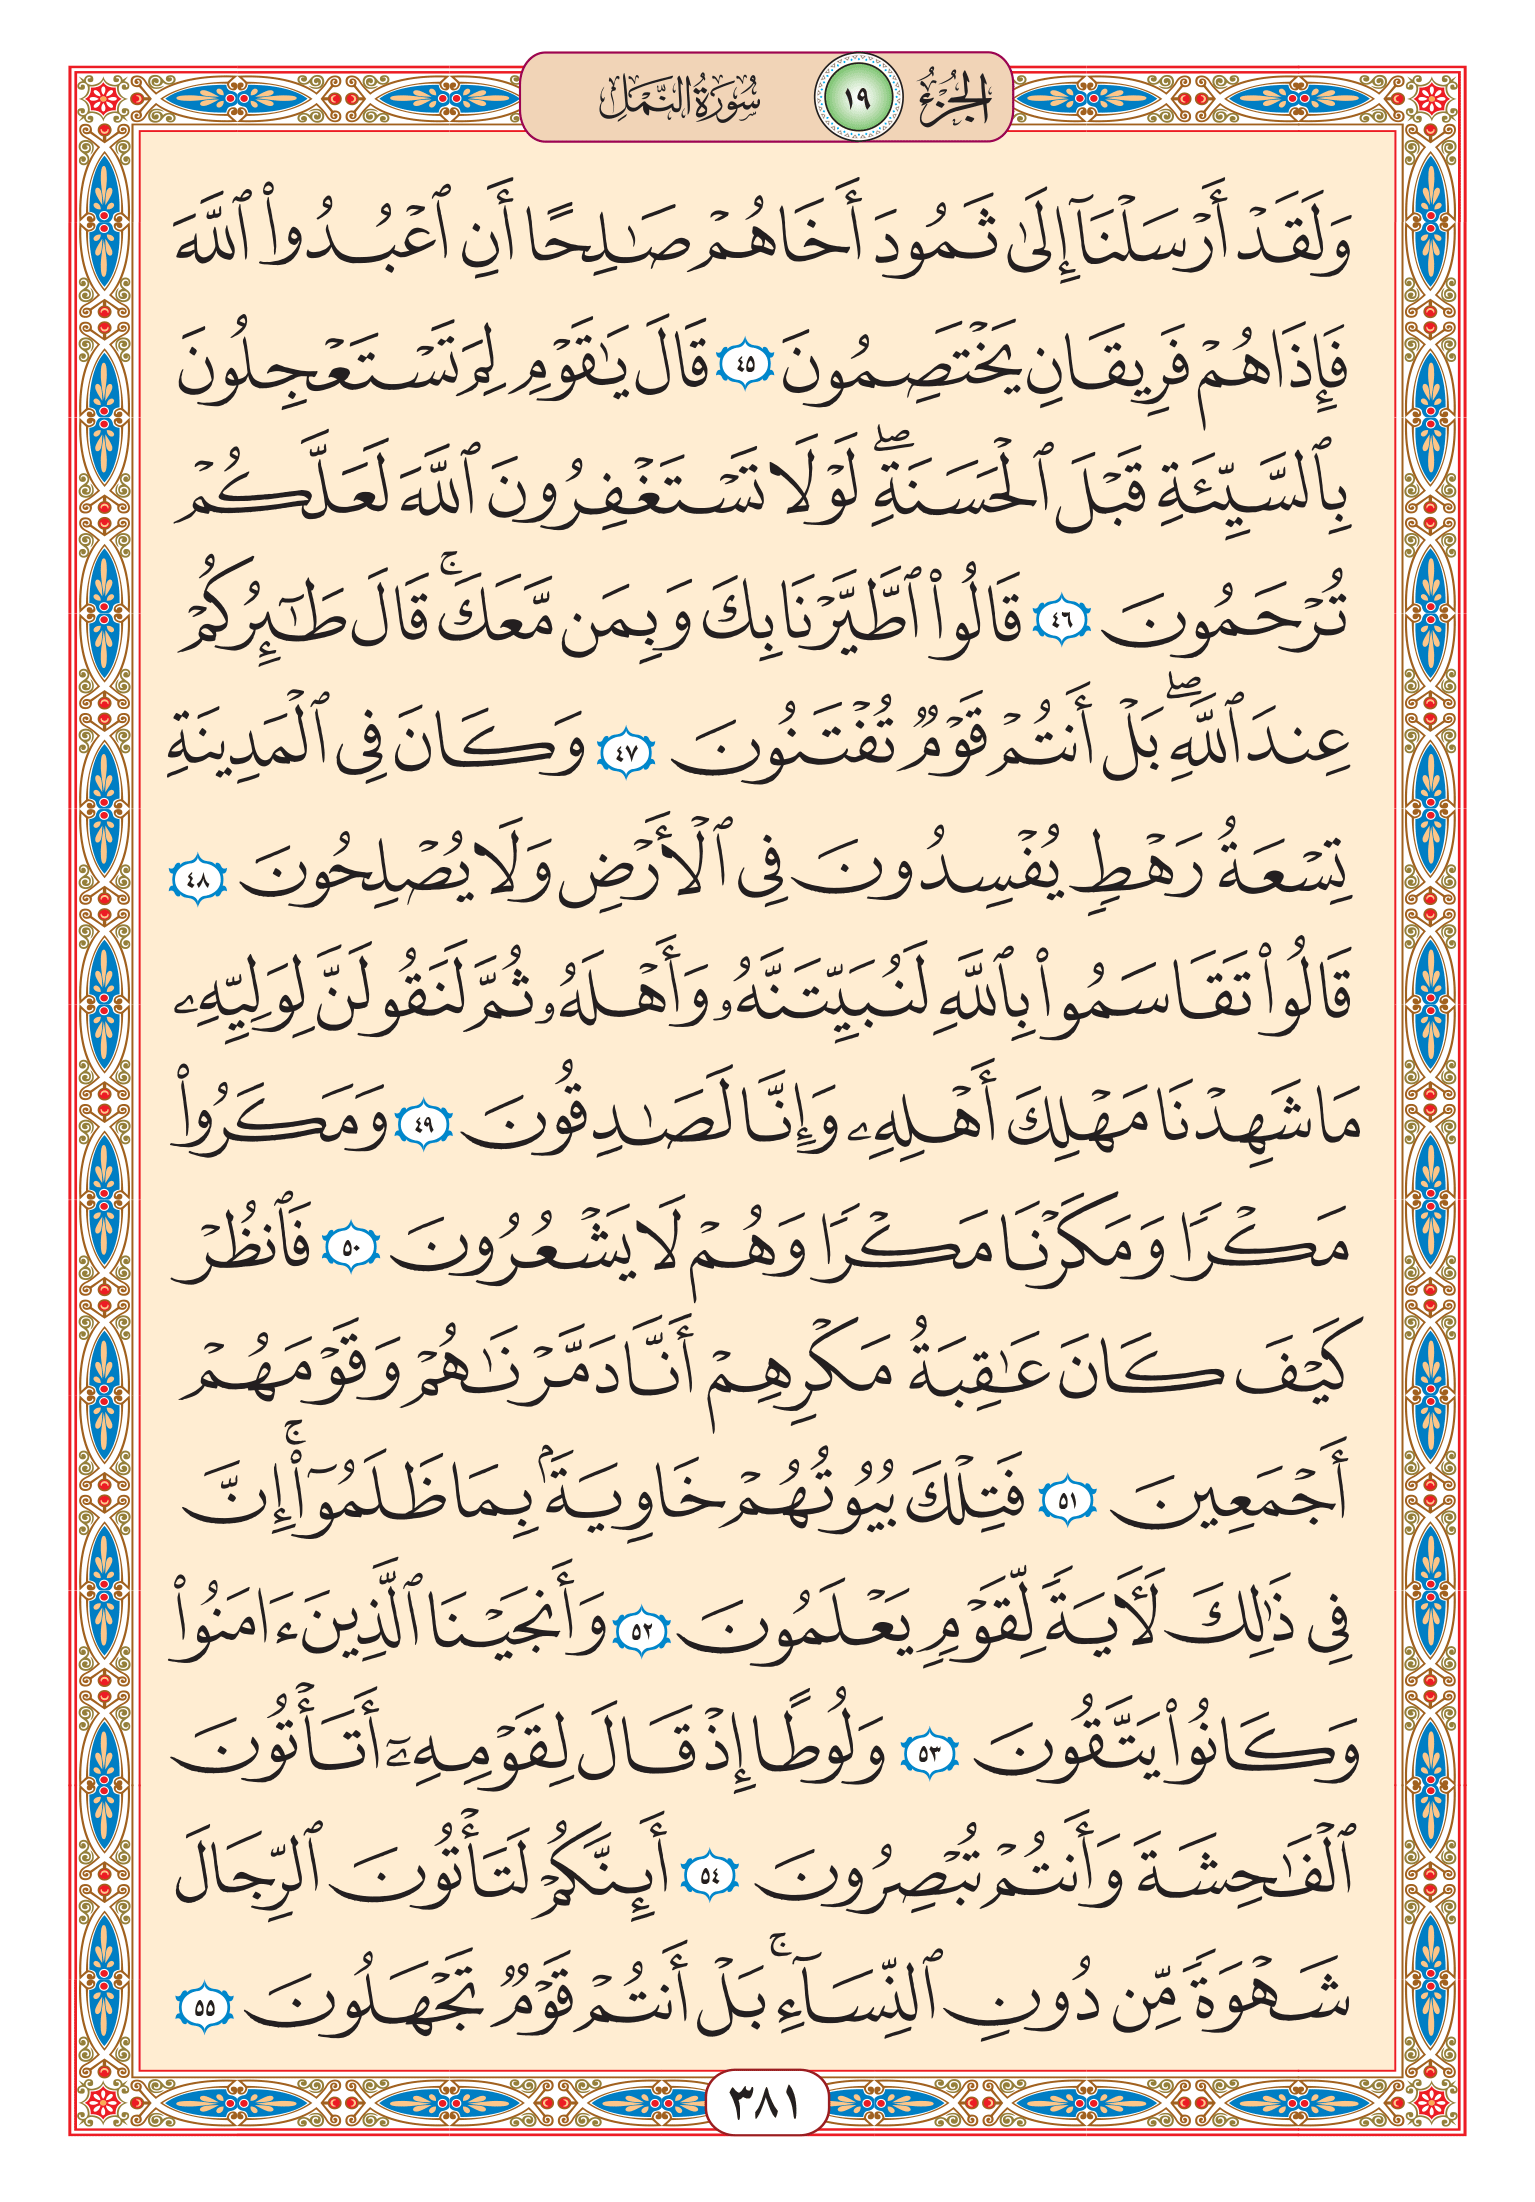 الجزء ١٩ سورة النمل
وَلَقَدْ أَرْسَلْنَآ إِلَىٰ ثَمُودَ أَخَاهُمْ صَـٰلِحًا أَنِ ٱعْبُدُوا۟ ٱللَّهَ
فَإِذَا هُمْ فَرِيقَانِ يَخْتَصِمُونَ ٤٥ قَالَ يَـٰقَوْمِ لِمَ تَسْتَعْجِلُونَ
بِٱلسَّيِّئَةِ قَبْلَ ٱلْحَسَنَةِ ۖ لَوْلَا تَسْتَغْفِرُونَ ٱللَّهَ لَعَلَّكُمْ
تُرْحَمُونَ ٤٦ قَالُوا۟ ٱطَّيَّرْنَا بِكَ وَبِمَن مَّعَكَ ۚ قَالَ طَـٰٓئِرُكُمْ
عِندَ ٱللَّهِ ۖ بَلْ أَنتُمْ قَوْمٌ تُفْتَنُونَ ٤٧ وَكَانَ فِى ٱلْمَدِينَةِ
تِسْعَةُ رَهْطٍ يُفْسِدُونَ فِى ٱلْأَرْضِ وَلَا يُصْلِحُونَ ٤٨
قَالُوا۟ تَقَاسَمُوا۟ بِٱللَّهِ لَنُبَيِّتَنَّهُۥ وَأَهْلَهُۥ ثُمَّ لَنَقُولَنَّ لِوَلِيِّهِۦ
مَا شَهِدْنَا مَهْلِكَ أَهْلِهِۦ وَإِنَّا لَصَـٰدِقُونَ ٤٩ وَمَكَرُوا۟
مَكْرًا وَمَكَرْنَا مَكْرًا وَهُمْ لَا يَشْعُرُونَ ٥٠ فَٱنظُرْ
كَيْفَ كَانَ عَـٰقِبَةُ مَكْرِهِمْ أَنَّا دَمَّرْنَـٰهُمْ وَقَوْمَهُمْ
أَجْمَعِينَ ٥١ فَتِلْكَ بُيُوتُهُمْ خَاوِيَةًۢ بِمَا ظَلَمُوٓا۟ ۚ إِنَّ
فِى ذَٰلِكَ لَـَٔايَةً لِّقَوْمٍ يَعْلَمُونَ ٥٢ وَأَنجَيْنَا ٱلَّذِينَ ءَامَنُوا۟
وَكَانُوا۟ يَتَّقُونَ ٥٣ وَلُوطًا إِذْ قَالَ لِقَوْمِهِۦٓ أَتَأْتُونَ
ٱلْفَـٰحِشَةَ وَأَنتُمْ تُبْصِرُونَ ٥٤ أَئِنَّكُمْ لَتَأْتُونَ ٱلرِّجَالَ
شَهْوَةً مِّن دُونِ ٱلنِّسَآءِ ۚ بَلْ أَنتُمْ قَوْمٌ تَجْهَلُونَ ٥٥
٣٨١